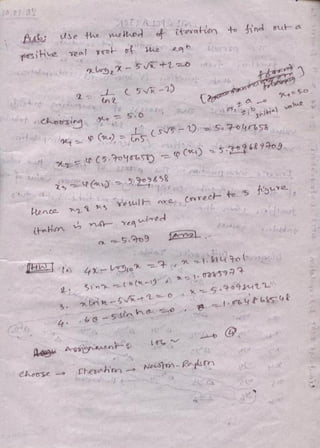 Ask: Use the method of iteration to find out a
positive real root of the eqn
x log_e x - 5√x + 2 = 0
x = 1/ln x (5√x - 2)
Choosing x₀ = 5.0
initial value x₀ = 5.0
x₁ = φ(x₀) = 1/ln5 (5√5 - 2) = 5.7041658
x₂ = φ(5.7041658) = φ(x₁) = 5.709689709
x₃ = φ(x₂) = 5.709658
Hence x₂ & x₃ result are correct to 3 figure
itration is not required
x = 5.709 Ans
HW 1. 4x - log₁₀x = 7, x = 1.814701
2. sin x =
3. x ln x - 5√x + 2 = 0, x = 5.7098422
4. 6θ - 5 sin hθ = 0, θ =
Assignment-5 106 ④
Choose → Iteration → Newton-Raphson